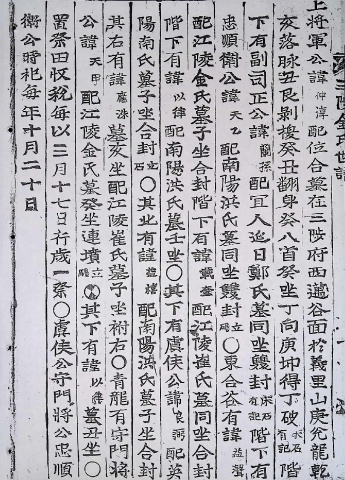 三陟金氏世譜
上將軍公諱仲淳配位合墓在三陟府西遝谷面於義里山庚兌龍乾
亥落脉丑艮剝換癸丑翻身癸入首癸坐丁向庚坤得丁破床石有記階
下有副司正公諱龍孫配宜人迎日鄭氏墓同坐雙封床石有記階下有
忠順衛公諱天乙配南陽洪氏墓同坐雙封○東合谷有諱益聲
配江陵金氏墓子坐合封階下有諱配江陵崔氏墓同坐合封
階下有諱以律配南陽洪氏墓壬坐○其下有虞侯公諱良弼配英
陽南氏墓子坐合封立石○其北有諱益樓配南陽洪氏墓子坐合封
其右有諱墓亥坐配江陵崔氏墓子坐祔右○青龍有守門將
公諱天甲配江陵金氏墓癸坐連墳立○其下有諱以墓丑坐○
置祭田収稅每以三月十七日行歲一祭○虞侯公守門將公忠順
衛公時祀每年十月二十日